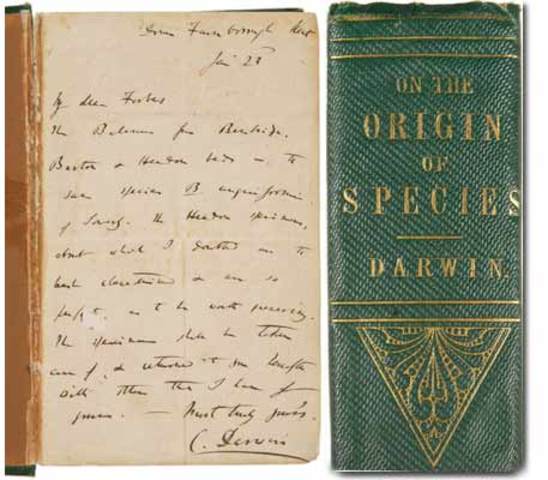 Down Farnborough Kent
Jan 23
My dear Forbes
The Balanus from Bembridge,
Barton & Headon beds
same species B unguiformis
of Sowerby. The Headon specimens,
about which I doubted
best & are so
perfect, as to be worth preserving.
The specimens shall be taken
care of, & returned to you together
with others that I have of
yours. — Most truly yours.
C. Darwin
ON THE
ORIGIN
OF
SPECIES
DARWIN.